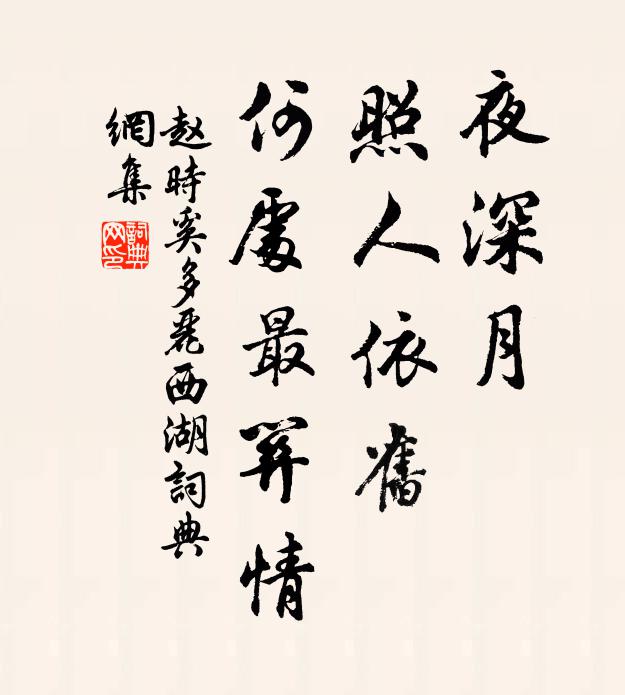 夜深月
照人依舊
何處最関情
赵時奚多麗西湖詞典
網集
詞典
网印